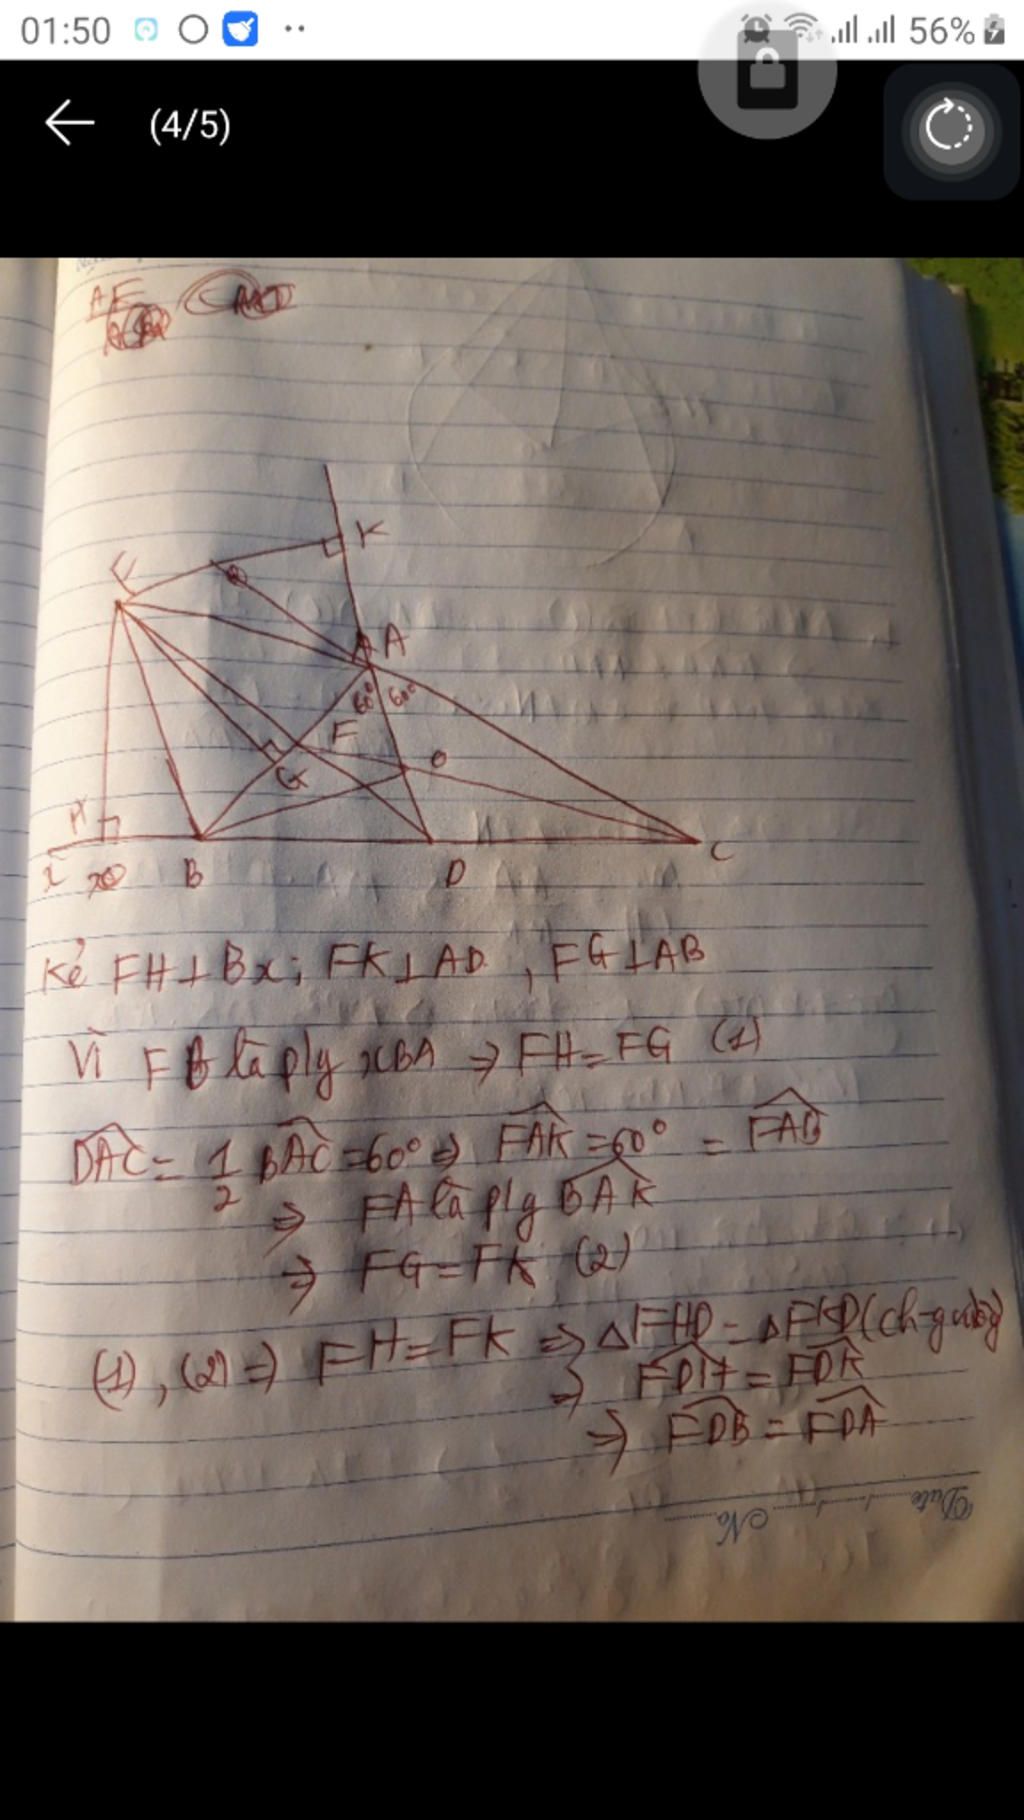 01:50
56%
(4/5)
K
A
60° 60°
F
O
G
H
x B D C
Kẻ FH⊥Bx; FK⊥AD, FG⊥AB
Vì FB là p/g xBA ⇒ FH=FG (1)
DAC = 1/2 BAC = 60° ⇒ FAK = 60° = FAB
⇒ FA là p/g BAK
⇒ FG=FK (2)
(1), (2) ⇒ FH=FK ⇒ ΔFHD = ΔFKD (ch-g
⇒ FDH = FDK
⇒ FDB = FDA
Date
No